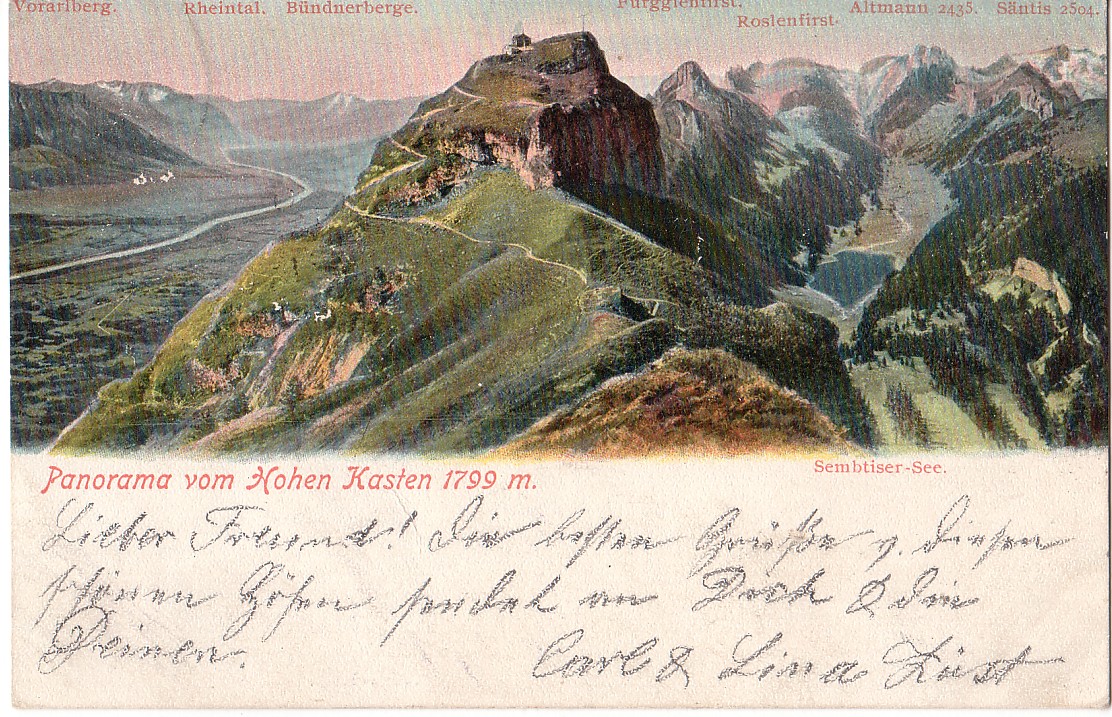 Vorarlberg. Rheintal. Bündnerberge. Furgglenfirst. Roslenfirst. Altmann 2435. Säntis 2504.
Panorama vom Hohen Kasten 1799 m.
Sembtiser-See.
Lieber Freund! Die besten Grüße v. diesen
schönen Höhen sendet an Dich & die
Deinen.
Carl & Lina